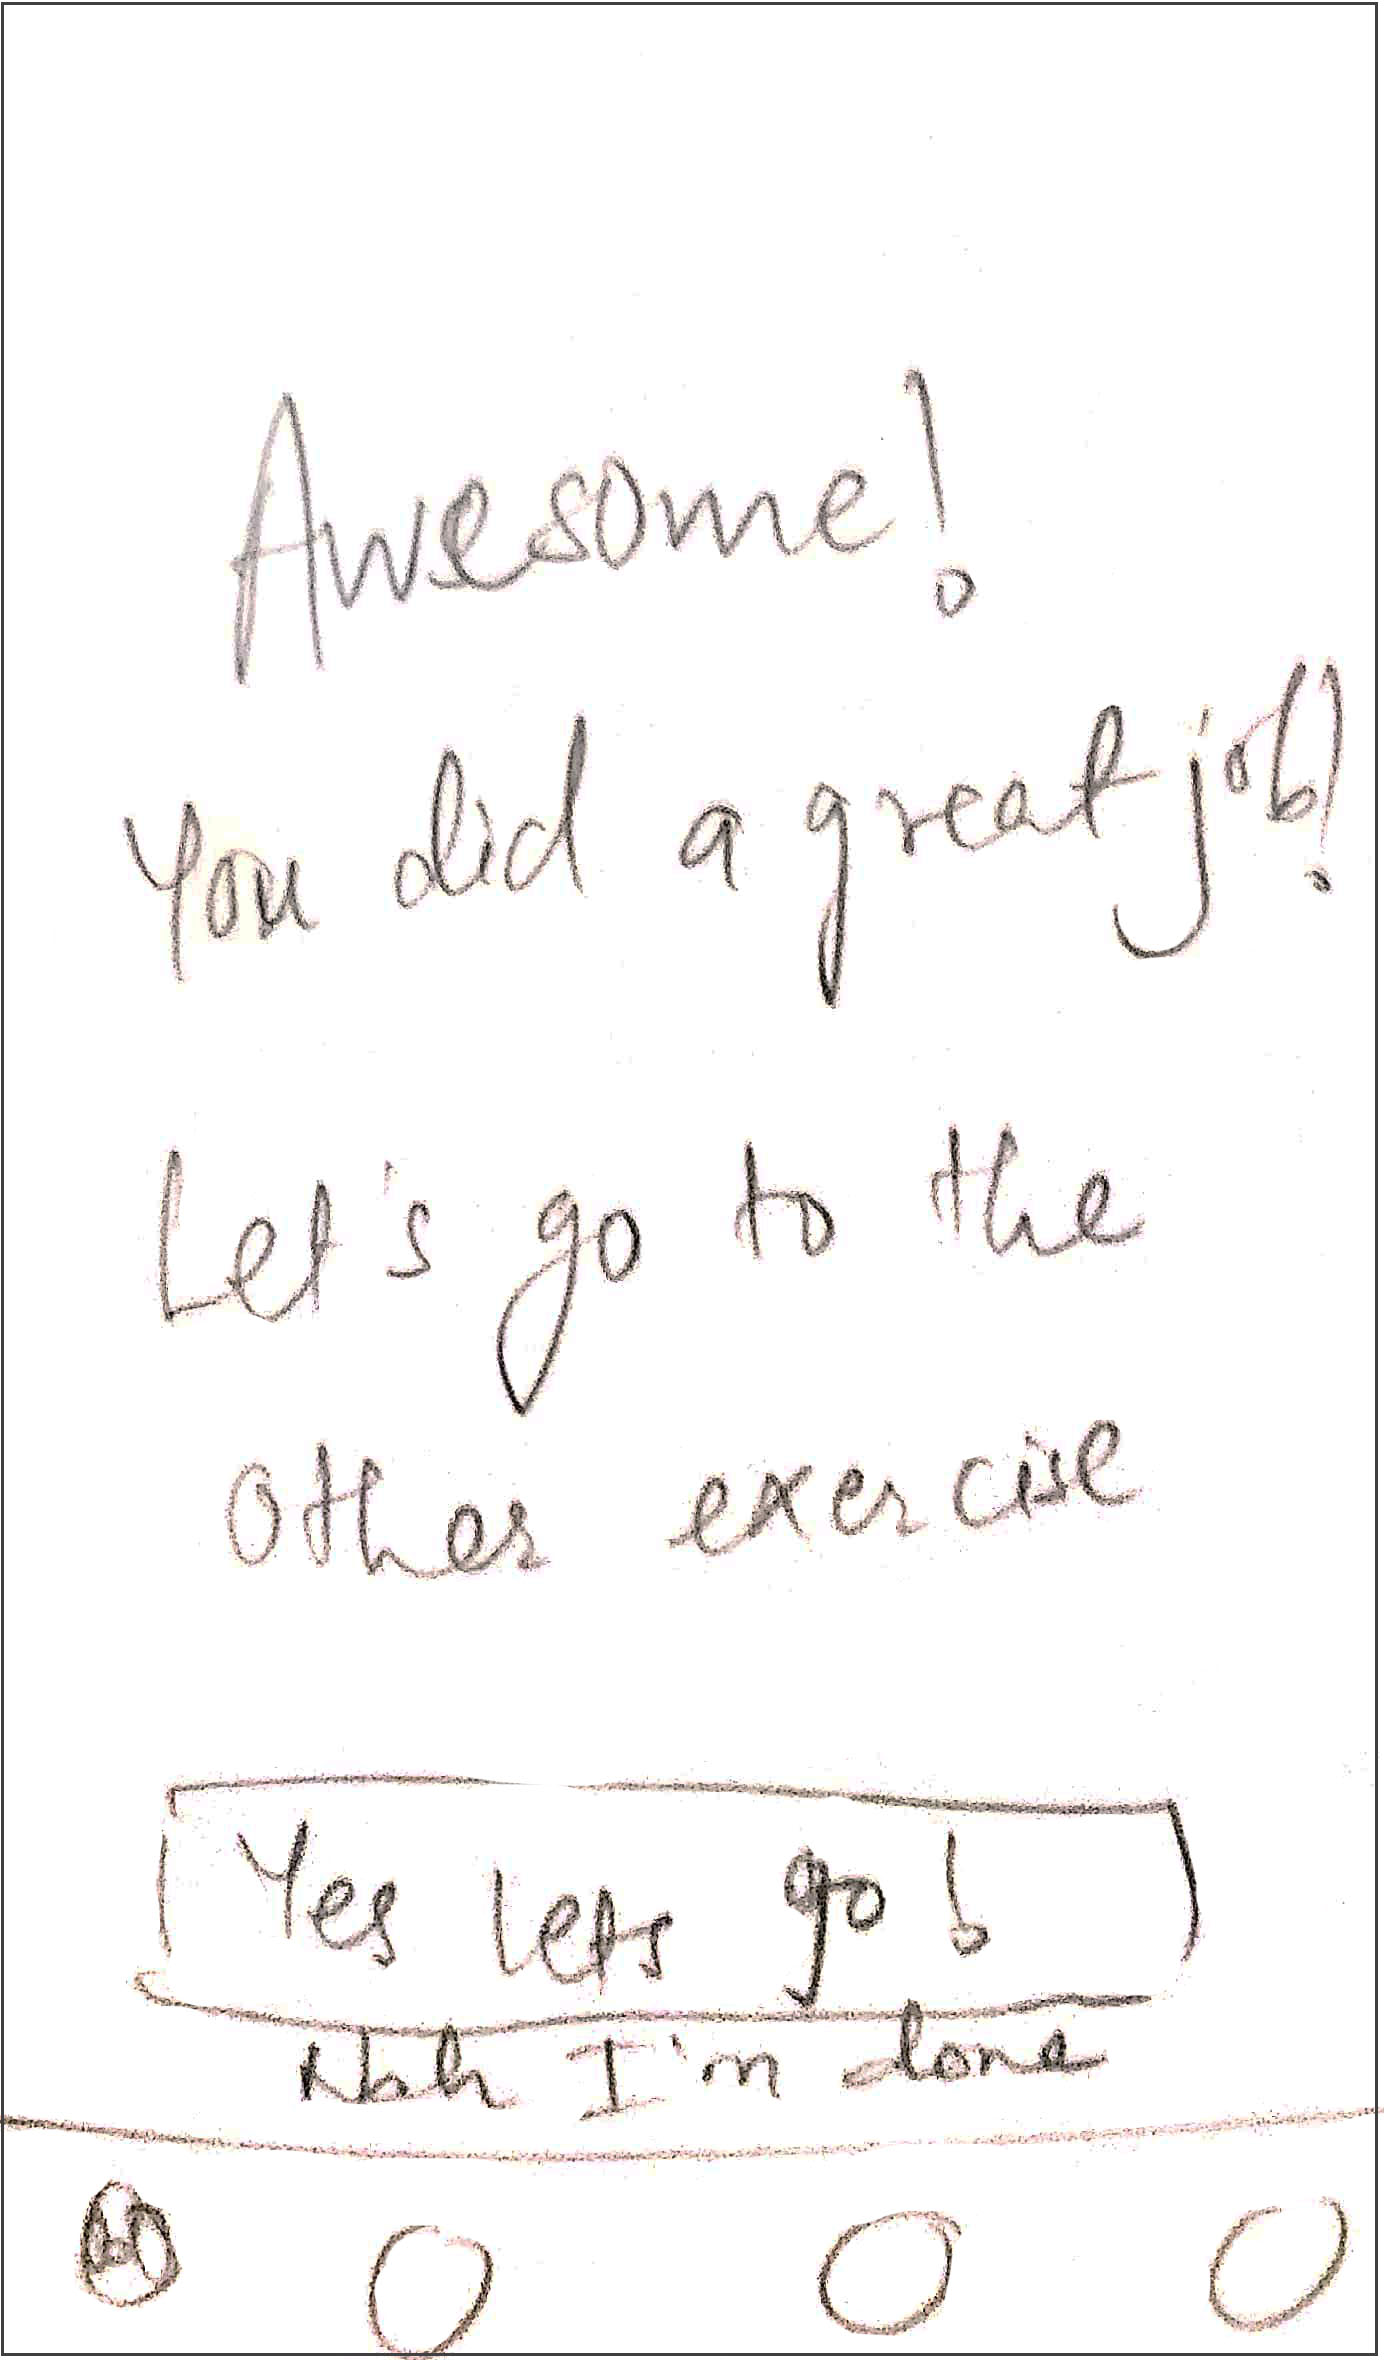 Awesome!
You did a great job!
Let's go to the
other exercise
Yes lets go!
Nah I'm done